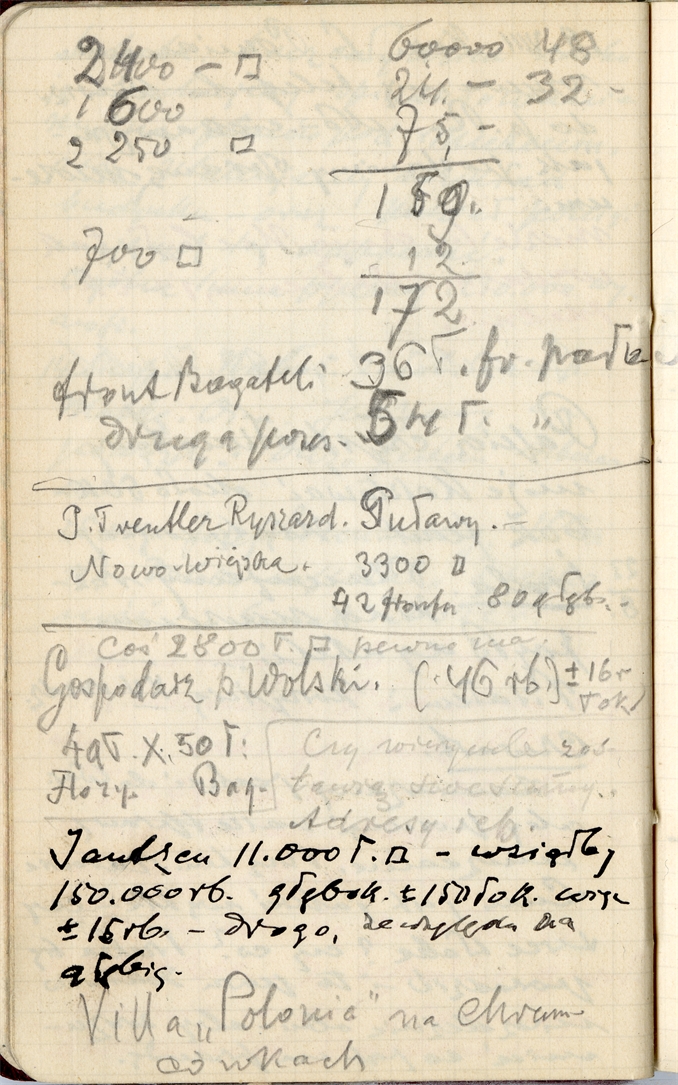 2400 – □
1600
2 250 □
700 □
60000 48
24. – 32 –
75, –
159.
12
172
front Bagateli 36 ł. fr. parku
druga poses. 54 ł. "
P. Trentler Ryszard. Puławy. –
Nowo-wiejska. 3300 □
42 frontu 80 głęb. –
Coś 2800 ł. □ pewno ma.
Gospodarz p Wolski. (46 rb.) ± 16 r
łok)
49 ł. X. 50 ł:
Flory. Bag.
Czy wierzyciele zos-
tawią
Adresy ich.
Jantzen 11.000 ł. □ – wziąłby
150.000 rb. głębok. ± 150 łok. więc
± 15 rb. – drogo, ze względu na
głębię.
Villa „Polonia" na Chram-
cówkach